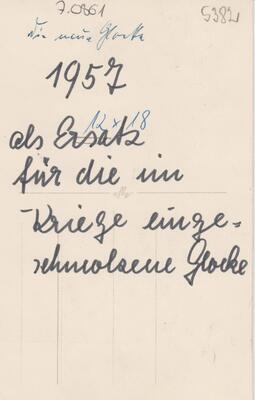 7.0861
5382
die neue Glocke
1957
12 x 18
als Ersatz
für die im
Kriege einge=
schmolzene Glocke